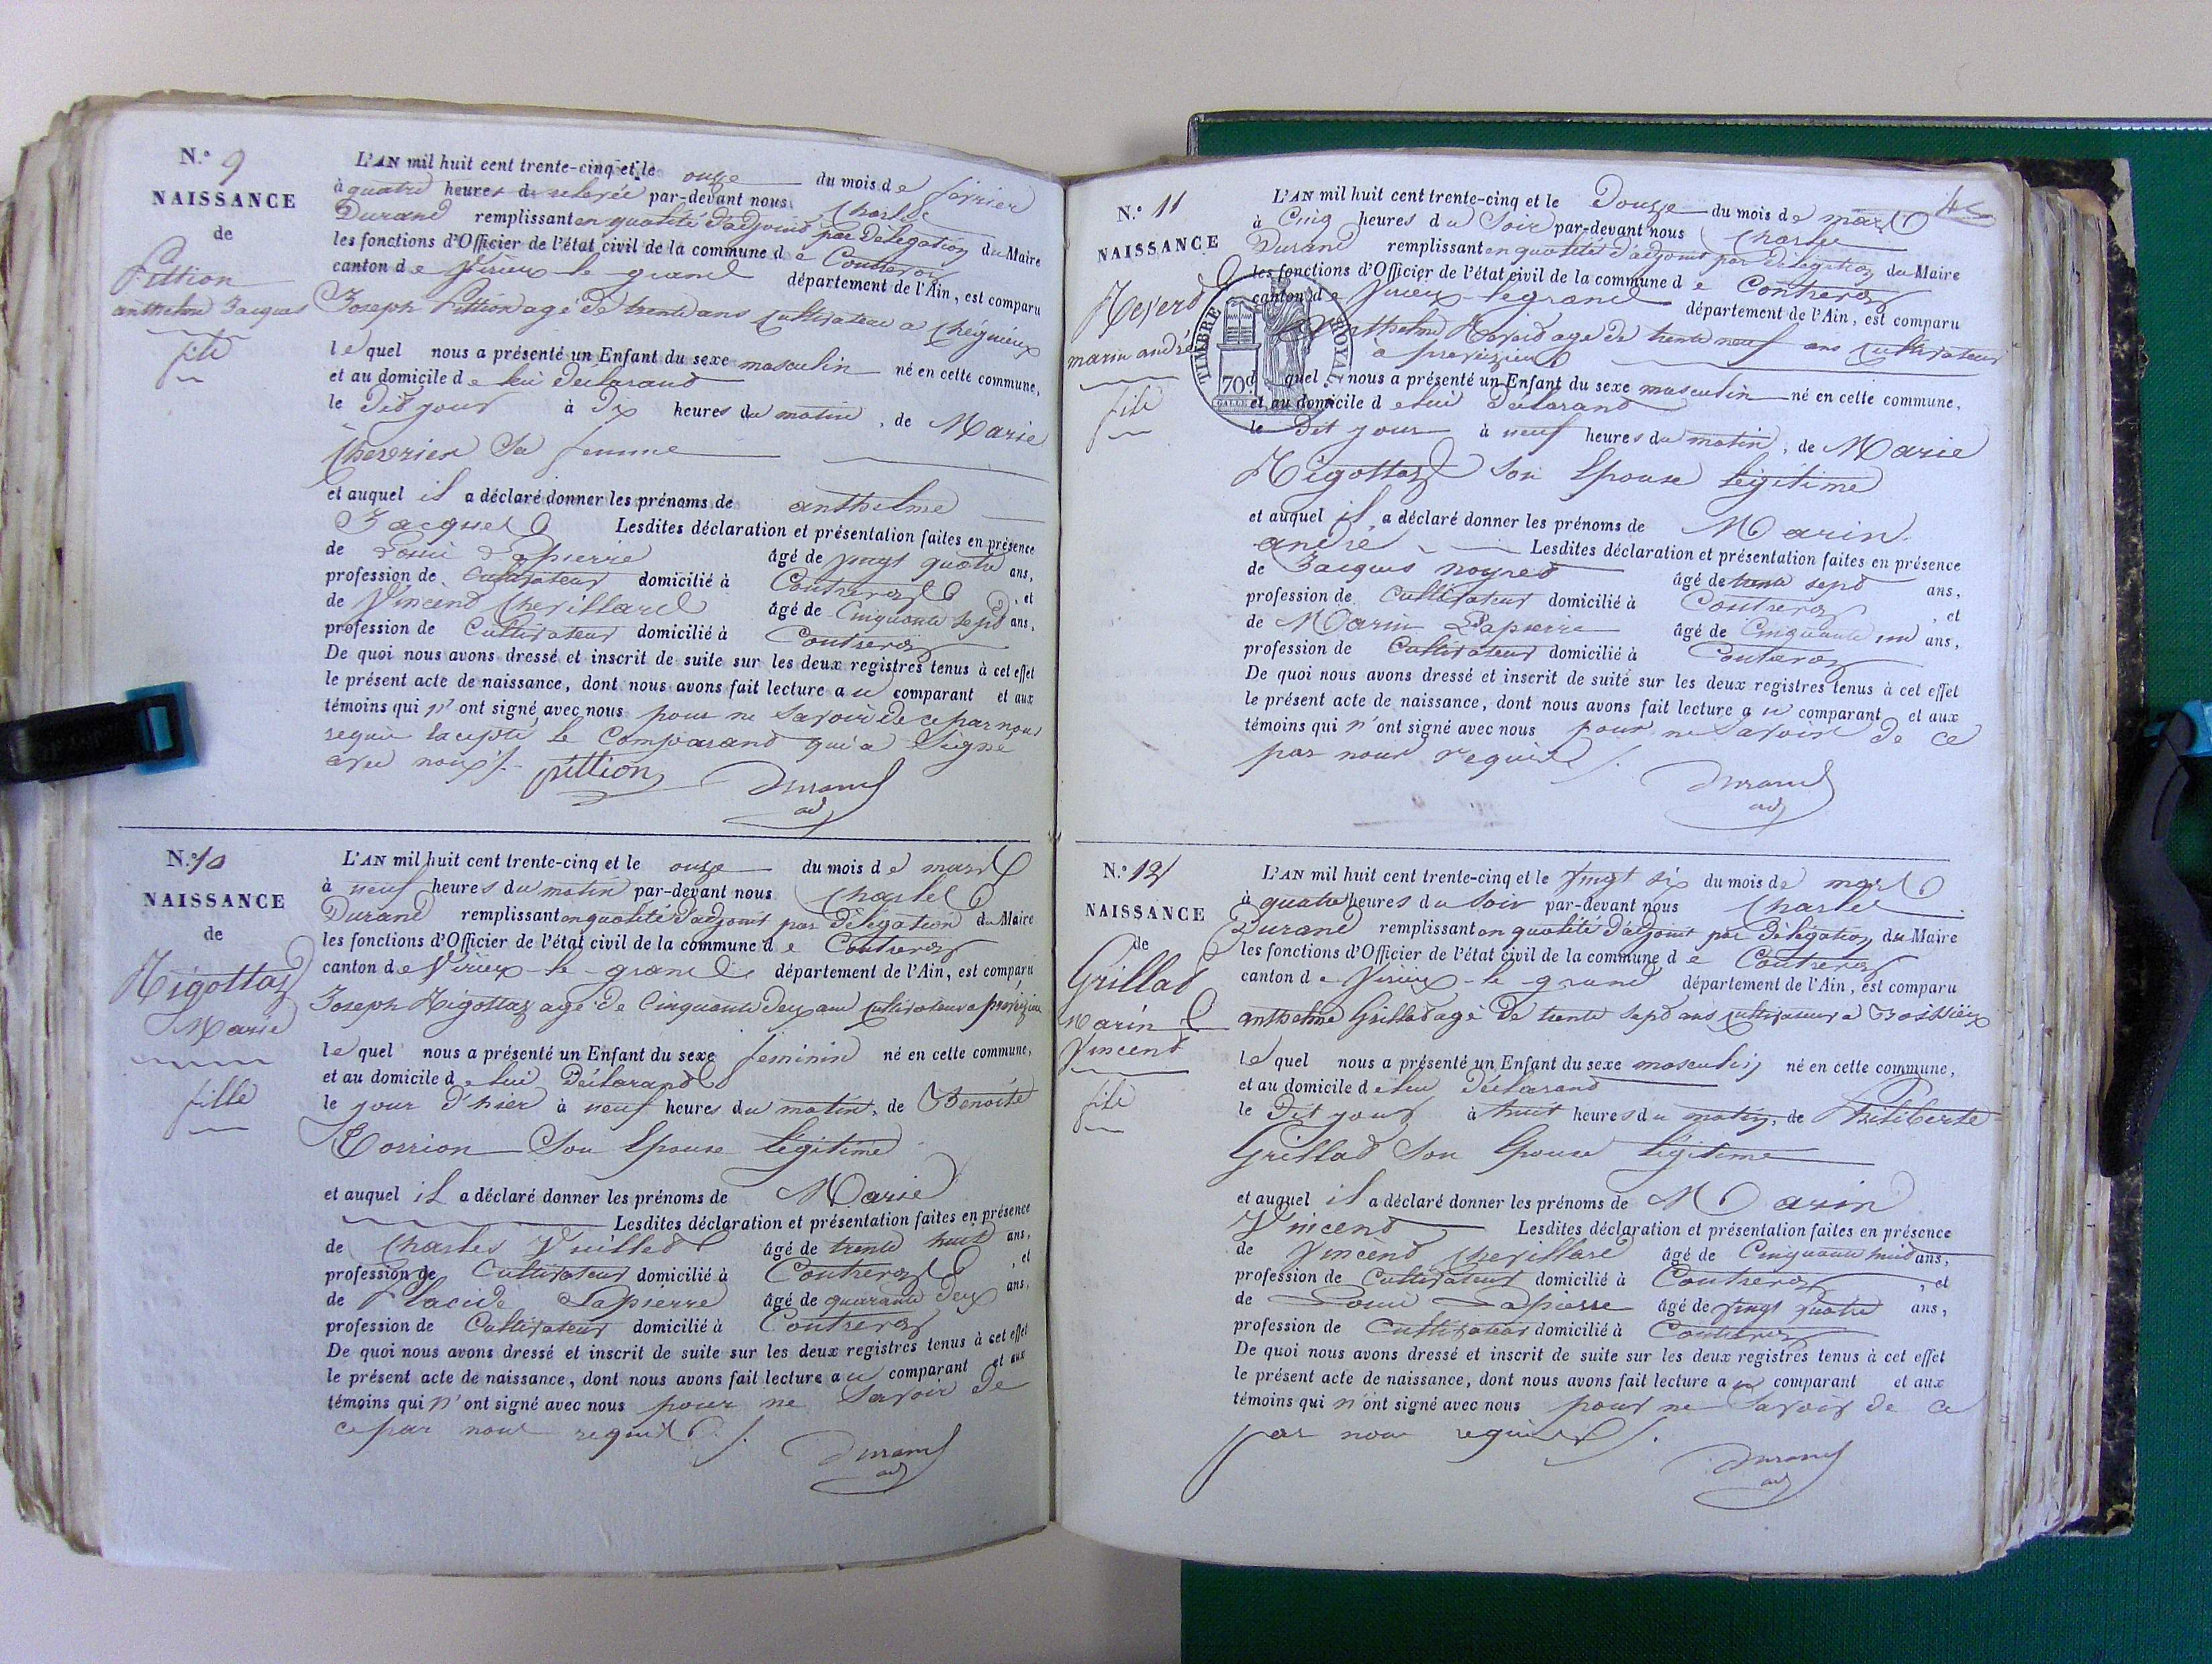 N.° 9
NAISSANCE
de
Pittion
anthelme Jacques
fils
L'AN mil huit cent trente-cinq et le onze du mois de février
à quatre heures de relevée par-devant nous Charles
Durand remplissant en qualité d'adjoint par délégation du Maire
les fonctions d'Officier de l'état civil de la commune de Contrevoz
canton de Virieux le grand département de l'Ain, est comparu
Joseph Pittion agé de trente ans cultivateur a Chégnieux
lequel nous a présenté un Enfant du sexe masculin né en cette commune,
et au domicile de lui déclarand
le dit jour à dix heures du matin, de Marie
Chervrier Sa femme
et auquel il a déclaré donner les prénoms de anthelme
Jacques Lesdites déclaration et présentation faites en présence
de Louis Lapierre âgé de vingt quatre ans,
profession de Cultivateur domicilié à Contrevoz, et
de Vincend Chevillard âgé de Cinquante sept ans,
profession de Cultivateur domicilié à Contrevoz
De quoi nous avons dressé et inscrit de suite sur les deux registres tenus à cet effet
le présent acte de naissance, dont nous avons fait lecture au comparant et aux
témoins qui n'ont signé avec nous pour ne Savoir de ce par nous
requis le Comparand qui a Signé
avec nous ./.
pittion
Durand
adj
N.° 10
NAISSANCE
de
Rigottaz
Marie
fille
L'AN mil huit cent trente-cinq et le onze du mois de mars
à neuf heures du matin par-devant nous Charles
Durand remplissant en qualité d'adjoint par délégation du Maire
les fonctions d'Officier de l'état civil de la commune de Contrevoz
canton de Virieux-le-grand département de l'Ain, est comparu
Joseph Rigottaz agé de Cinquante deux ans cultivateur a preveizieux
lequel nous a présenté un Enfant du sexe feminin né en cette commune,
et au domicile de lui Déclarand
le jour d'hier à neuf heures du matin, de Benoite
Torrion Son Epouse légitime
et auquel il a déclaré donner les prénoms de Marie
Lesdites déclaration et présentation faites en présence
de Charles Vuilled âgé de trente huit ans,
profession de Cultivateur domicilié à Contrevoz, et
de Placide Lapierre âgé de quarante deux ans,
profession de Cultivateur domicilié à Contrevoz
De quoi nous avons dressé et inscrit de suite sur les deux registres tenus à cet effet
le présent acte de naissance, dont nous avons fait lecture au comparant et aux
témoins qui n'ont signé avec nous pour ne Savoir de
ce par nous requis ./.
Durand
adj
N.° 11
NAISSANCE
marin andré
fils
TIMBRE ROYAL
70c
L'AN mil huit cent trente-cinq et le Douze du mois de mars
à Cinq heures du Soir par-devant nous Charles
Durand remplissant en qualité d'adjoint par délégation du Maire
les fonctions d'Officier de l'état civil de la commune de Contrevoz
canton de Virieux-legrand département de l'Ain, est comparu
anthelme agé de trente neuf ans cultivateur
à preveizieux
quel nous a présenté un Enfant du sexe masculin né en cette commune,
et au domicile de lui Déclarand
le dit jour à neuf heures du matin, de Marie
Rigottaz Son Epouse légitime
et auquel il a déclaré donner les prénoms de Marin
andré Lesdites déclaration et présentation faites en présence
de Jacques âgé de trente sept ans,
profession de Cultivateur domicilié à Contrevoz, et
de Marin Lapierre âgé de Cinquante un ans,
profession de Cultivateur domicilié à Contrevoz
De quoi nous avons dressé et inscrit de suite sur les deux registres tenus à cet effet
le présent acte de naissance, dont nous avons fait lecture au comparant et aux
témoins qui n'ont signé avec nous pour ne Savoir de ce
par nous requis ./.
Durand
adj
N.° 12
NAISSANCE
de
Grillad
Marin
Vincend
fils
L'AN mil huit cent trente-cinq et le vingt six du mois de mars
à quatre heures du Soir par-devant nous Charles
Durand remplissant en qualité d'adjoint par délégation du Maire
les fonctions d'Officier de l'état civil de la commune de Contrevoz
canton de Virieux-le grand département de l'Ain, est comparu
anthelme Grillad agé de trente sept ans cultivateur a Boissieux
lequel nous a présenté un Enfant du sexe masculin né en cette commune,
et au domicile de lui déclarand
le dit jour à huit heures du matin, de Philiberte
Grillad Son Epouse légitime
et auquel il a déclaré donner les prénoms de Marin
Vincend Lesdites déclaration et présentation faites en présence
de Vincend Chevillard âgé de Cinquante huit ans,
profession de Cultivateur domicilié à Contrevoz, et
de Louis Lapierre âgé de vingt quatre ans,
profession de Cultivateur domicilié à Contrevoz
De quoi nous avons dressé et inscrit de suite sur les deux registres tenus à cet effet
le présent acte de naissance, dont nous avons fait lecture au comparant et aux
témoins qui n'ont signé avec nous pour ne Savoir de ce
par nous requis ./.
Durand
adj